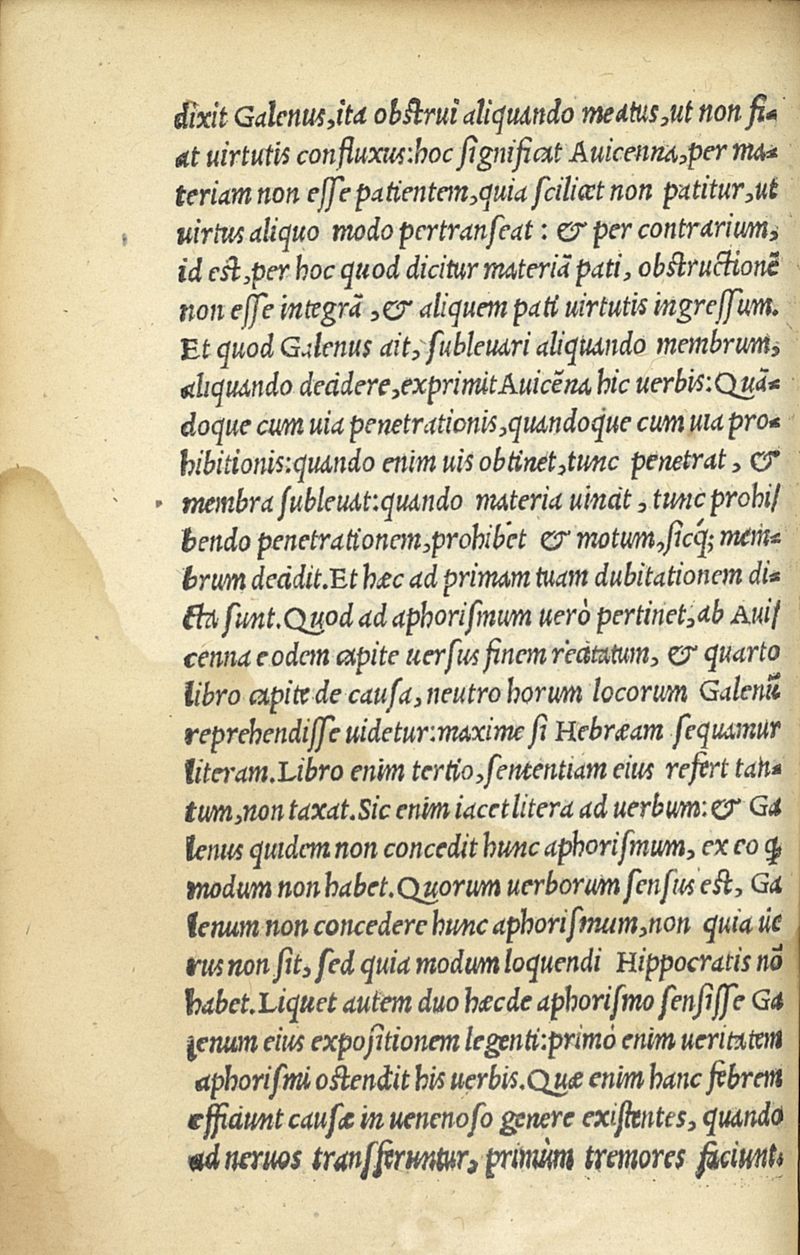 dixit Galenus,ita obstrui aliquando meatus,ut non fi-
at uirtutis confluxus:hoc significat Auicenna,per ma-
teriam non esse patientem,quia scilicet non patitur,ut
uirtus aliquo modo pertranseat : & per contrarium,
id est,per hoc quod dicitur materiã pati, obstructionẽ
non esse integrã ,& aliquem pati uirtutis ingressum.
Et quod Galenus ait, subleuari aliquando membrum,
aliquando decidere,exprimit Auicẽna hic uerbis:Quã-
doque cum uia penetrationis,quandoque cum uia pro-
hibitionis:quando enim uis obtinet,tunc penetrat, &
membra subleuat:quando materia uincit, tunc prohi/
bendo penetrationem,prohibet & motum,sicq́; mem-
brum decidit.Et hæc ad primam tuam dubitationem di-
cta sunt.Quod ad aphorismum uerò pertinet,ab Aui/
cenna eodem capite uersus finem recitatum, & quarto
libro capite de causa,neutro horum locorum Galenũ
reprehendisse uidetur:maxime si Hebræam sequamur
literam.Libro enim tertio,sententiam eius refert tan-
tum,non taxat.Sic enim iacet litera ad uerbum:& Ga
lenus quidem non concedit hunc aphorismum, ex eo ꝙ
modum non habet.Quorum uerborum sensus est, Ga
lenum non concedere hunc aphorismum,non quia ue
rus non sit, sed quia modum loquendi Hippocratis nõ
habet.Liquet autem duo hæc de aphorismo sensisse Ga
lenum eius expositionem legenti:primò enim ueritatem
aphorismi ostendit his uerbis.Quæ enim hanc febrem
efficiunt causæ in uenenoso genere existentes, quando
ad neruos transferuntur, primùm tremores faciunt.